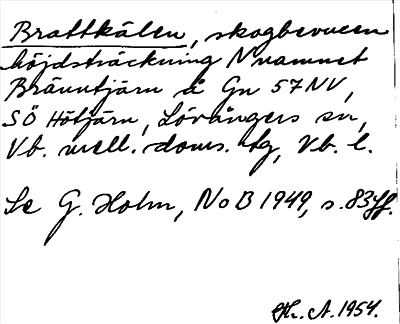 Brattkälen, skogbevuxen
höjdsträckning N namnet
Bränntjärn å Gn 57 NV,
SÖ Hötjärn, Lövångers sn,
Vb. mell. doms. tg, Vb. l.
Se G. Holm, NoB 1949, s. 83 ff.
A. 1954.